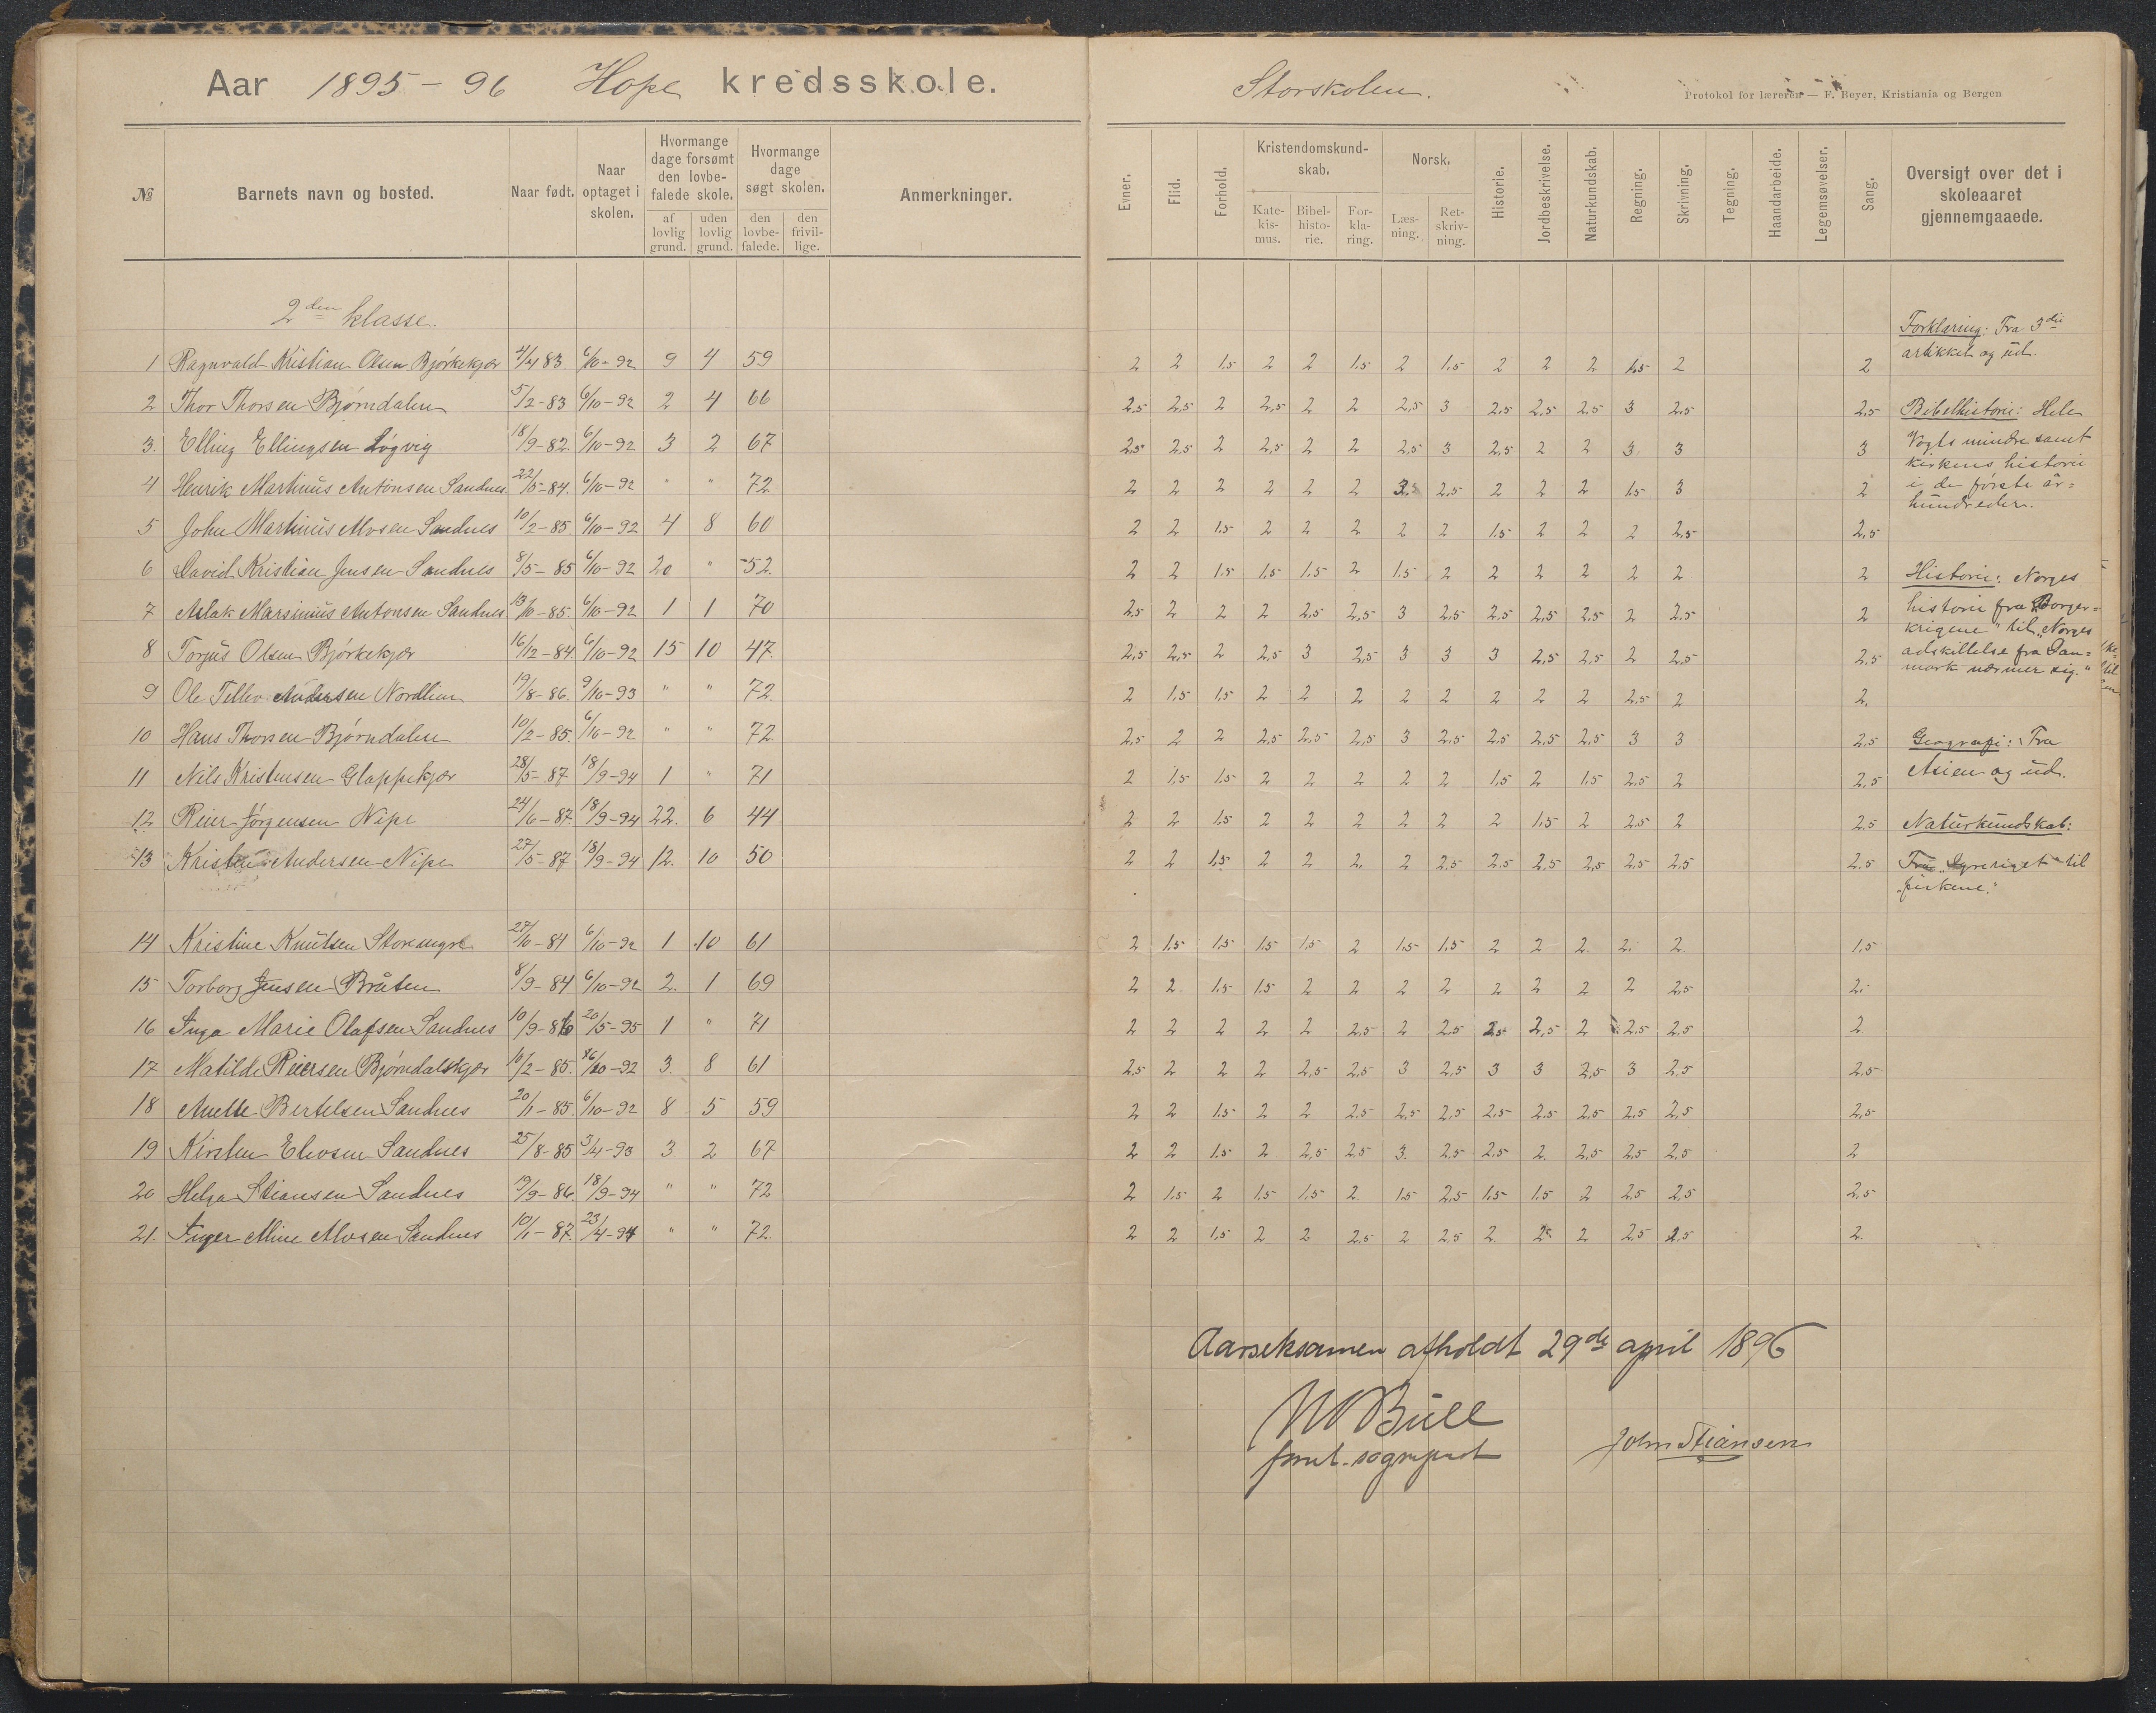 Aar 1895 - 96 Hope kredsskole.
Storskolen.
Protokol for læreren — F. Beyer, Kristiania og Bergen
№ Barnets navn og bosted. Naar født. Naar optaget i skolen. Hvormange dage forsømt den lovbefalede skole. af lovlig grund. uden lovlig grund. Hvormange dage søgt skolen. den lovbefalede. den frivillige. Anmerkninger.
Evner. Flid. Forhold. Kristendomskundskab. Katekismus. Bibelhistorie. Forklaring. Norsk. Læsning. Retskrivning. Historie. Jordbeskrivelse. Naturkundskab. Regning. Skrivning. Tegning. Haandarbeide. Legemsøvelser. Sang. Oversigt over det i skoleaaret gjennemgaaede.
2den klasse.
1 Ragnvald Kristian Olsen Bjørkekjær 4/4 83 6/10-92 9 4 59 2 2 1.5 2 2 1.5 2 1.5 2 2 2 1.5 2 2
2 Thor Thorsen Bjørndalen 5/2-83 6/10-92 2 4 66 2.5 2.5 2 2.5 2 2 2.5 3 2.5 2.5 2.5 3 2.5 2.5
3. Elling Ellingsen Løgvig 18/9-82. 6/10-92 3 2 67 2.5 2.5 2 2.5 2 2 2.5 3 2.5 2 2 3 3 3
4 Henrik Martinus Antonsen Sandnes 22/5-84. 6/10-92 " " 72 2 2 2 2 2 2 2.5 2 2 2 1.5 3 2
5 John Martinius Alvsen Sandnes 10/2-85. 6/10-92 4 8 60 2 2 1.5 2 2 2 2 2 1.5 2 2 2 2.5 2.5
6 David Kristian Jensen Sandnes 8/5-85 6/10-92 20 " 52. 2 2 1.5 1.5 1.5 2 1.5 2 2 2 2 2 2 2
7 Aslak Marsinius Antonsen Sandnes 13/10-85. 6/10-92 1 1 70 2.5 2 2 2 2.5 2.5 3 2.5 2.5 2.5 2.5 2 2.5 2
8 Torjus Olsen Bjørkekjær 16/12-84. 6/10-92 15 10 47. 2.5 2.5 2 2.5 3 2.5 3 3 3 2.5 2.5 2 2.5 2.5
9 Ole Tellev Andersen Nordlien 19/8-86. 9/10-93 " " 72. 2 1.5 1.5 2 2 2 2 2 2 2 2 2.5 2 2.
10 Hans Thorsen Bjørndalen 10/2-85. 6/10-92 " " 72 2.5 2 2 2.5 2.5 2.5 3 2.5 2.5 2.5 2.5 3 3 2.5
11 Nils Kristensen Glappekjær 28/5-87 18/9-94 1 " 71 2 1.5 1.5 2 2 2 2 2 1.5 2 1.5 2.5 2 2.5
12 Reier Jørgensen Nipe 24/6-87. 18/9-94 22. 6 44 2 2 1.5 2 2 2 2 2 2 1.5 2 2.5 2 2.5
13 Kristen Andersen Nipe 27/5-87 18/9-94 12. 10 50 2 2 1.5 2 2 2. 2 2.5 2.5 2.5 2.5 2.5 2.5 2.5
14 Kristine Knutsen 27/10-84 6/10-92 1 10 61 2 1.5 1.5 1.5 1.5 2 1.5 1.5 2 2 2. 2. 2 1.5
15 Torborg Jensen Bråten 8/9-84 6/10-92 2. 1 69 2 2 1.5 1.5 2 2 2 2 2 2 2 2 2.5 2.
16 Inga Marie Olafsen Sandnes 10/9-86 20/5-95 1 " 71 2 2 2 2 2 2.5 2 2.5 2.5 2.5 2 2.5 2.5 2
17 Matilde Reiersen Bjørndalskjær 10/2-85. 6/10-92 3. 8 61 2.5 2 2 2 2.5 2.5 3 2.5 3 3 2.5 3 2.5 2.5
18 Anette Bertelsen Sandnes 20/1-85. 6/10-92 8 5 59 2 2 1.5 2 2 2.5 2.5 2.5 2.5 2.5 2.5 2.5 2.5 2.5
19 Kirsten Elvosen Sandnes 25/8-85 3/4-93 3 2 67 2 2 1.5 2 2.5 2.5 3. 2.5 2.5 2. 2.5 2.5 2.5 2
20 Helga Stiansen Sandnes 19/9-86 18/9-94 " " 72 2 1.5 2 1.5 1.5 2 1.5 2.5 1.5 1.5 2 2.5 2.5 2.5
21. Inger Aline Alvsen Sandnes 10/1-87. 23/4-94 " " 72. 2 2 1.5 2 2 2.5 2 2.5 2 2 2 2.5 2.5 2.
Forklaring: Fra 3die
artikkel og ud.
Bibelhistorie: Hele
Vogts mindre samt
kirkens historie
i de første år=
hundreder.
Historie: Norges
historie fra "Borger=
krigene" til "Norges
adskillelse fra Dan=
mark nærmer sig."
Geografi: Fra
Asien og ud.
Naturkundskab:
Fra "Dyreriget" til
fiskene.
Aarseksamen afholdt 29de april 1896
Bull
const. sogneprest
John Stiansen